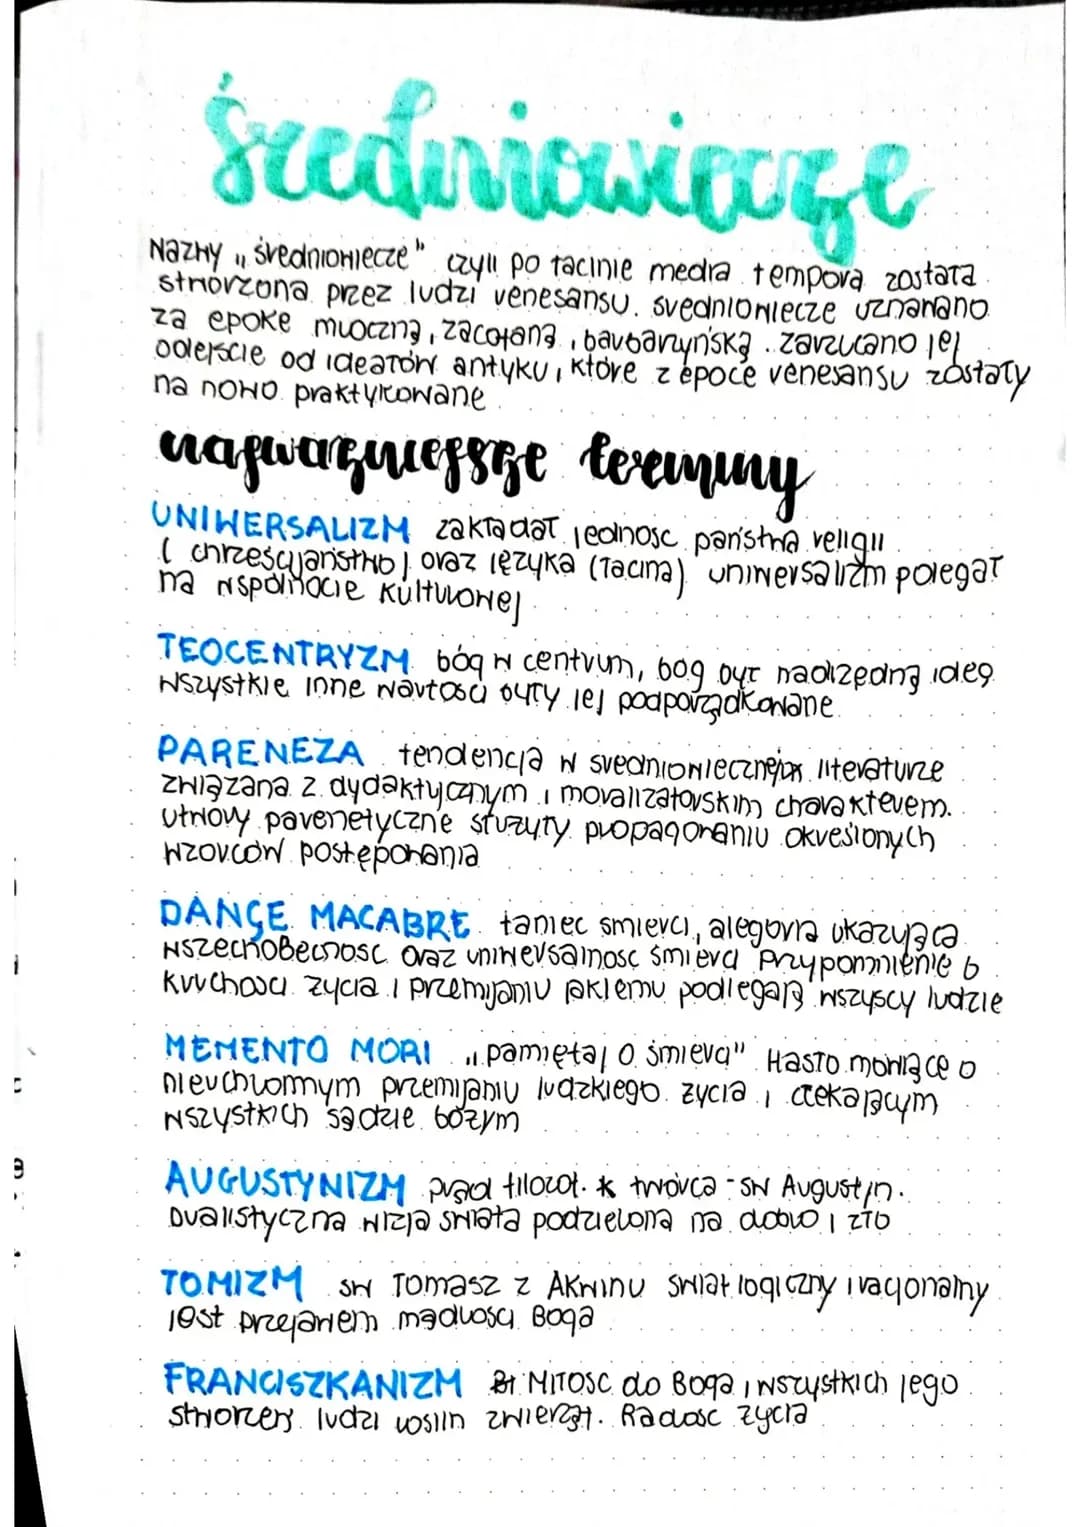 średniowiecze
Nazwy „średniowiecze" czyli po łacinie media tempora została
stworzona przez ludzi renesansu. średniowiecze uznawano
za epokę mroczną, zacofaną, barbarzyńską. zarzucano jej
odejście od ideałów antyku, które z epoce renesansu zostały
na nowo praktykowane
najważniejsze terminy
UNIWERSALIZM zakładał jedność państwa religii
(chrześcijaństwo) oraz języka (łacina) uniwersalizm polegał
na wspólnocie kulturowej
TEOCENTRYZM bóg w centrum, bóg był nadrzędną ideą
wszystkie inne wartości były jej podporządkowane
PARENEZA tendencja w średniowiecznej literaturze
związana z dydaktycznym i moralizatorskim charakterem.
utwory parenetyczne służyły propagowaniu określonych
wzorców postępowania
DANÇE MACABRE taniec śmierci, alegoria ukazująca
wszechobecność oraz uniwersalność śmierci Przypomnienie o
kruchości życia i przemijaniu jakiemu podlegają wszyscy ludzie
MEMENTO MORI „pamiętaj o śmierci" Hasło mówiące o
nieuchronnym przemijaniu ludzkiego życia i czekającym
wszystkich sądzie bożym
AUGUSTYNIZM prąd filozof. twórca - św Augustyn.
Dualistyczna wizja świata podzielona na dobro i zło
TOMIZM św Tomasz z Akwinu świat logiczny i racjonalny
jest przejawem mądrości Boga
FRANCISZKANIZM Miłość do Boga i wszystkich jego
stworzeń ludzi roślin zwierząt. Radość życia